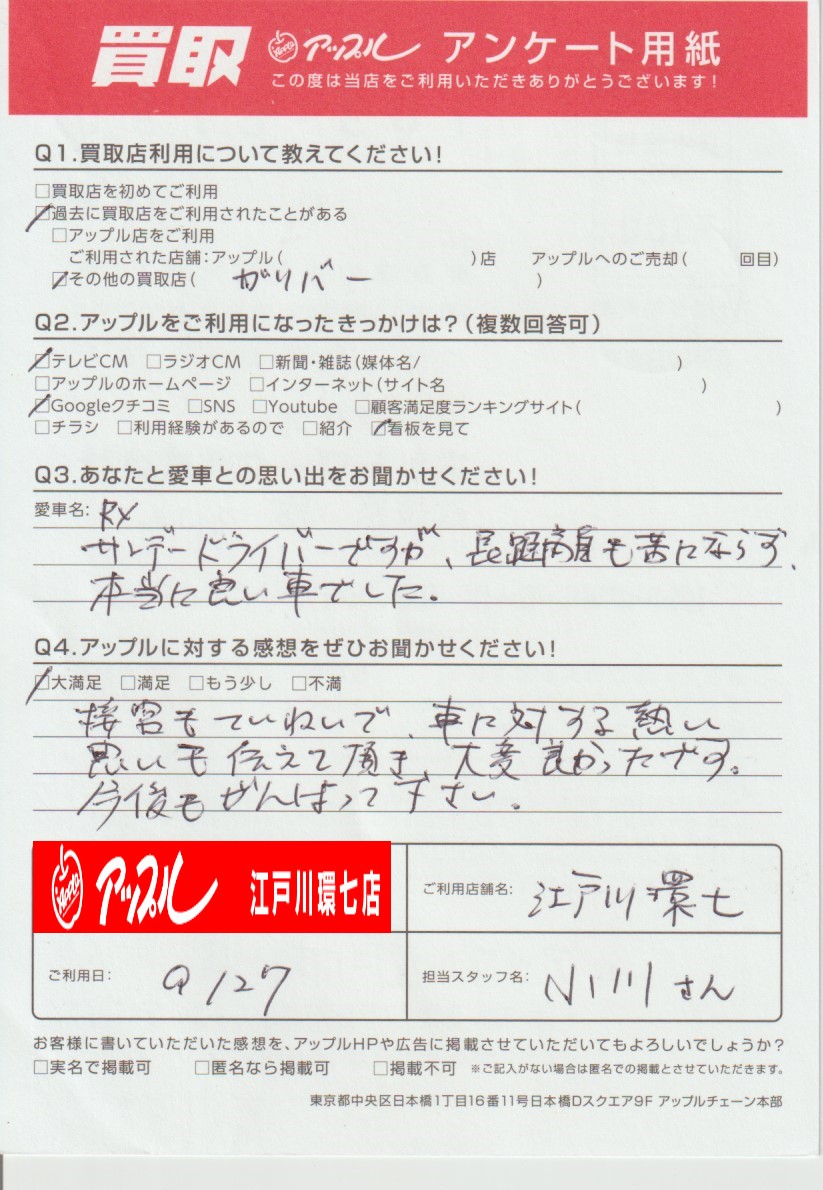 買取 Apple アップル アンケート用紙
この度は当店をご利用いただきありがとうございます!
Q1.買取店利用について教えてください!
□買取店を初めてご利用
☑過去に買取店をご利用されたことがある
□アップル店をご利用
ご利用された店舗:アップル( )店 アップルへのご売却( 回目)
☑その他の買取店( ガリバー )
Q2.アップルをご利用になったきっかけは?(複数回答可)
☑テレビCM □ラジオCM □新聞・雑誌(媒体名/ )
□アップルのホームページ □インターネット(サイト名 )
☑Googleクチコミ □SNS □Youtube □顧客満足度ランキングサイト( )
□チラシ □利用経験があるので □紹介 ☑看板を見て
Q3.あなたと愛車との思い出をお聞かせください!
愛車名: RX
サンデードライバーですが、長距離も苦にならず、
本当に良い車でした。
Q4.アップルに対する感想をぜひお聞かせください!
☑大満足 □満足 □もう少し □不満
接客もていねいで、車に対する熱い
思いも伝えて頂き、大変良かったです。
今後もがんばって下さい。
Apple アップル 江戸川環七店
ご利用店舗名: 江戸川環七
ご利用日: 9/27
担当スタッフ名: 小川さん
お客様に書いていただいた感想を、アップルHPや広告に掲載させていただいてもよろしいでしょうか?
□実名で掲載可 □匿名なら掲載可 □掲載不可 ※ご記入がない場合は匿名での掲載とさせていただきます。
東京都中央区日本橋1丁目16番11号日本橋Dスクエア9F アップルチェーン本部